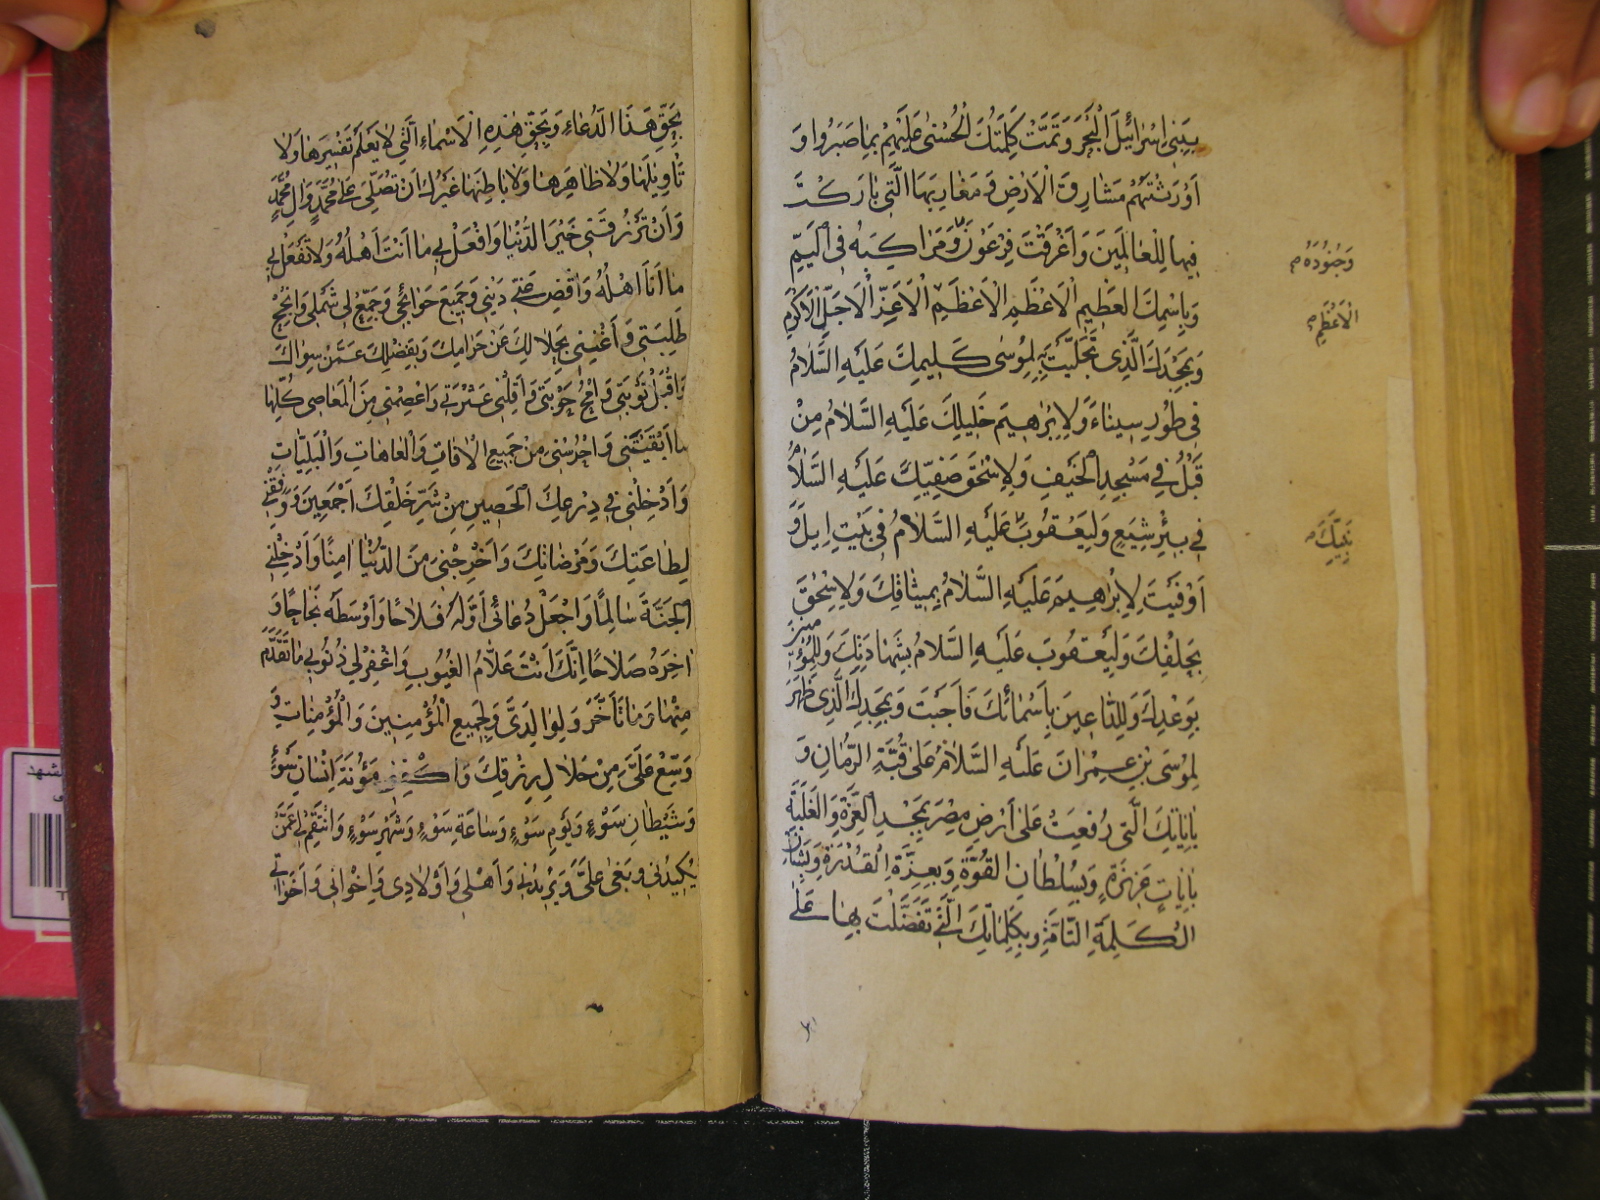 بِبَنِي اِسْرَائِيلَ الْبَحْرَ وَتَمَّتْ كَلِمَتُكَ الْحُسْنٰى عَلَيْهِمْ بِمٰا صَبَرُوا وَ
اَوْرَثْتَهُمْ مَشٰارِقَ الْاَرْضِ وَ مَغٰارِبَهَا الَّتِي بٰارَكْتَ
فِيهٰا لِلْعٰالَمِينَ وَاَغْرَقْتَ فِرْعَوْنَ وَ مَرٰاكِبَهُ فِي الْيَمِّ
وَجُنُودَهُ
وَبِاسْمِكَ الْعَظِيمِ الْاَعْظَمِ الْاَعْظَمِ الْاَعَزِّ الْاَجَلِّ الْاَكْرَمِ
الْاَعْظَمِ
وَبِمَجْدِكَ الَّذِي تَجَلَّيْتَ بِهِ لِمُوسٰى كَلِيمِكَ عَلَيْهِ السَّلٰامُ
فِي طُورِ سِينٰاءَ وَلِاِبْرٰهِيمَ خَلِيلِكَ عَلَيْهِ السَّلٰامُ مِنْ
قَبْلُ فِي مَسْجِدِ الْخَيْفِ وَلِاِسْحٰقَ صَفِيِّكَ عَلَيْهِ السَّلٰامُ
فِي بِئْرِ شِيَعٍ وَلِيَعْقُوبَ عَلَيْهِ السَّلٰامُ فِي بَيْتِ اِيلَ وَ
نَبِيِّكَ
اَوْفَيْتَ لِاِبْرٰاهِيمَ عَلَيْهِ السَّلٰامُ بِمِيثٰاقِكَ وَلِاِسْحٰقَ
بِحَلْفِكَ وَلِيَعْقُوبَ عَلَيْهِ السَّلٰامُ بِشَهٰادَتِكَ وَلِلْمُؤْمِنِينَ
بِوَعْدِكَ وَلِلدّٰاعِينَ بِاَسْمٰائِكَ فَاَجَبْتَ وَبِمَجْدِكَ الَّذِي ظَهَرَ
لِمُوسَى بْنِ عِمْرٰانَ عَلَيْهِ السَّلٰامُ عَلٰى قُبَّةِ الرُّمّٰانِ وَ
بِاٰيٰاتِكَ الَّتِي رُفِعَتْ عَلٰى اَرْضِ مِصْرَ بِمَجْدِ الْعِزَّةِ وَالْغَلَبَةِ
بِاٰيٰاتٍ عَزِيزَةٍ وَبِسُلْطٰانِ الْقُوَّةِ وَبِعِزَّةِ الْقُدْرَةِ وَبِشَأْنِ
الْكَلِمَةِ التّٰامَّةِ وَبِكَلِمٰاتِكَ الَّتِي تَفَضَّلْتَ بِهٰا عَلٰى
بِحَقِّ هَذَا الدُّعٰاءِ وَبِحَقِّ هٰذِهِ الْاَسْمٰاءِ الَّتِي لٰا يَعْلَمُ تَفْسِيرَهٰا وَلٰا
تَأْوِيلَهٰا وَلٰا ظٰاهِرَهٰا وَلٰا بٰاطِنَهٰا غَيْرُكَ اَنْ تُصَلِّيَ عَلٰى مُحَمَّدٍ وَاٰلِ مُحَمَّدٍ
وَاَنْ تَرْزُقَنِي خَيْرَ الدُّنْيٰا وَافْعَلْ بِي مٰا اَنْتَ اَهْلُهُ وَلٰا تَفْعَلْ بِي
مٰا اَنَا اَهْلُهُ وَاقْضِ عَنِّي دَيْنِي وَجَمِيعَ حَوٰائِجِي وَجَمِّعْ لِي شَمْلِي وَاَنْجِحْ
طَلِبَتِي وَ اَغْنِنِي بِحَلٰالِكَ عَنْ حَرٰامِكَ وَبِفَضْلِكَ عَمَّنْ سِوٰاكَ
وَاقْبَلْ تَوْبَتِي وَامْحُ حَوْبَتِي وَاَقِلْنِي عَثْرَتِي وَاعْصِمْنِي مِنَ الْمَعٰاصِي كُلِّهٰا
مٰا اَبْقَيْتَنِي وَاحْرُسْنِي مِنْ جَمِيعِ الْاٰفٰاتِ وَالْعٰاهٰاتِ وَالْبَلِيّٰاتِ
وَاَدْخِلْنِي فِي دِرْعِكَ الْحَصِينِ مِنْ شَرِّ خَلْقِكَ اَجْمَعِينَ وَوَفِّقْنِي
لِطٰاعَتِكَ وَمَرْضٰاتِكَ وَاَخْرِجْنِي مِنَ الدُّنْيٰا اٰمِنًا وَاَدْخِلْنِي
الْجَنَّةَ سٰالِمًا وَاجْعَلْ دُعٰائِي اَوَّلَهُ فَلٰاحًا وَاَوْسَطَهُ نَجٰاحًا وَ
اٰخِرَهُ صَلٰاحًا اِنَّكَ اَنْتَ عَلّٰامُ الْغُيُوبِ وَاغْفِرْ لِي ذُنُوبِي مٰا تَقَدَّمَ
مِنْهٰا وَمٰا تَاَخَّرَ وَلِوٰالِدَيَّ وَلِجَمِيعِ الْمُؤْمِنِينَ وَالْمُؤْمِنٰاتِ وَ
وَسِّعْ عَلَيَّ مِنْ حَلٰالِ رِزْقِكَ وَاكْفِنِي مَؤُنَةَ اِنْسٰانِ سَوْءٍ
وَشَيْطٰانِ سَوْءٍ وَيَوْمِ سَوْءٍ وَسٰاعَةِ سَوْءٍ وَشَهْرِ سَوْءٍ وَانْتَقِمْ لِي مِمَّنْ
يَكِيدُنِي وَبَغٰى عَلَيَّ وَيُرِيدُنِي وَاَهْلِي وَاَوْلٰادِي وَاِخْوٰانِي وَاَخَوٰاتِي